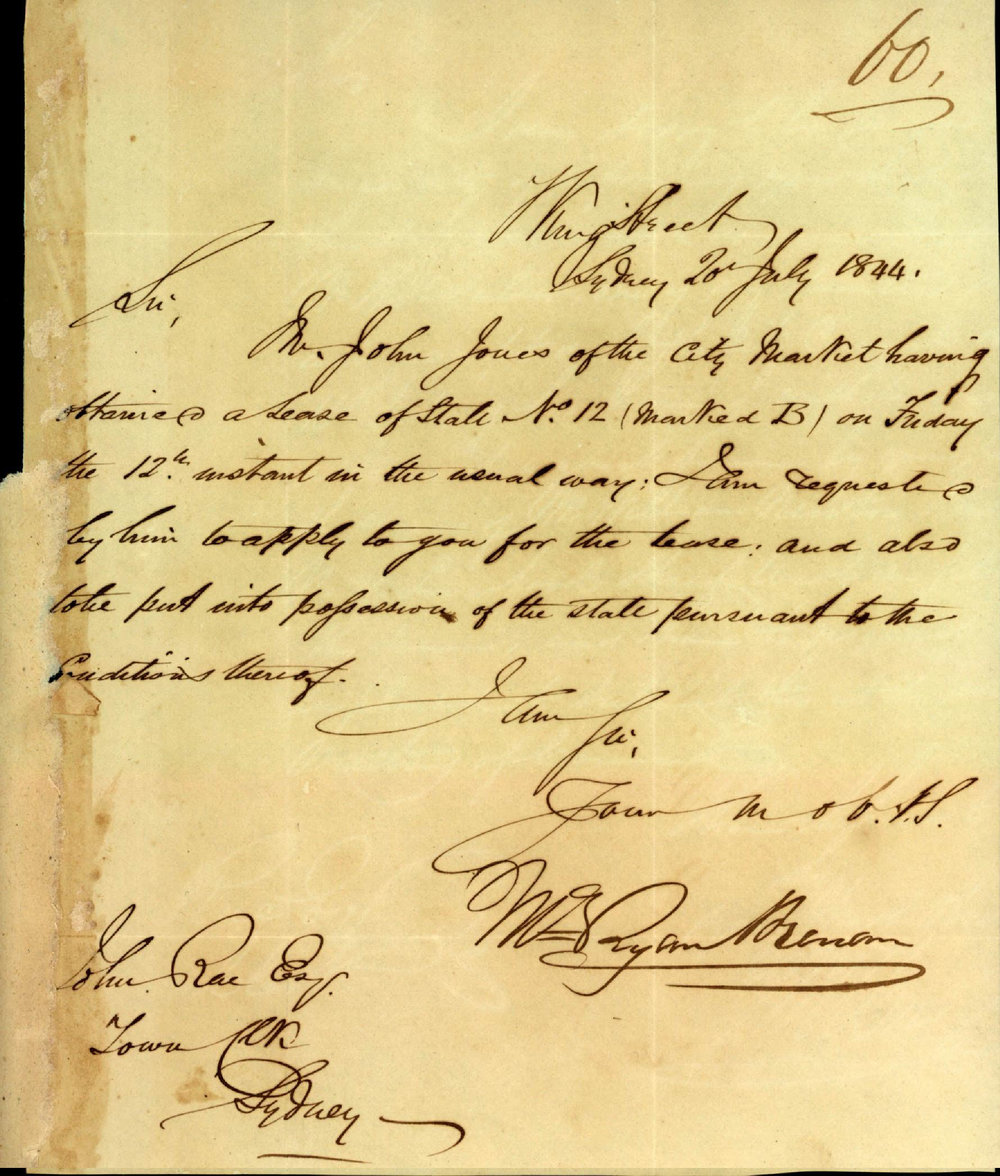 60,
King Street
Sydney 20 July 1844.
Sir,
Mr. John Jones of the City Market having
obtained a Lease of Stall No. 12 (Marked B) on Friday
the 12th. instant in the usual way; I am requested
by him to apply to you for the lease; and also
to be put into possession of the stall pursuant to the
Conditions thereof.
I am
Sir,
Your M Ob. St.
Ryan Brenan
John Rae Esq.
Town Clk
Sydney